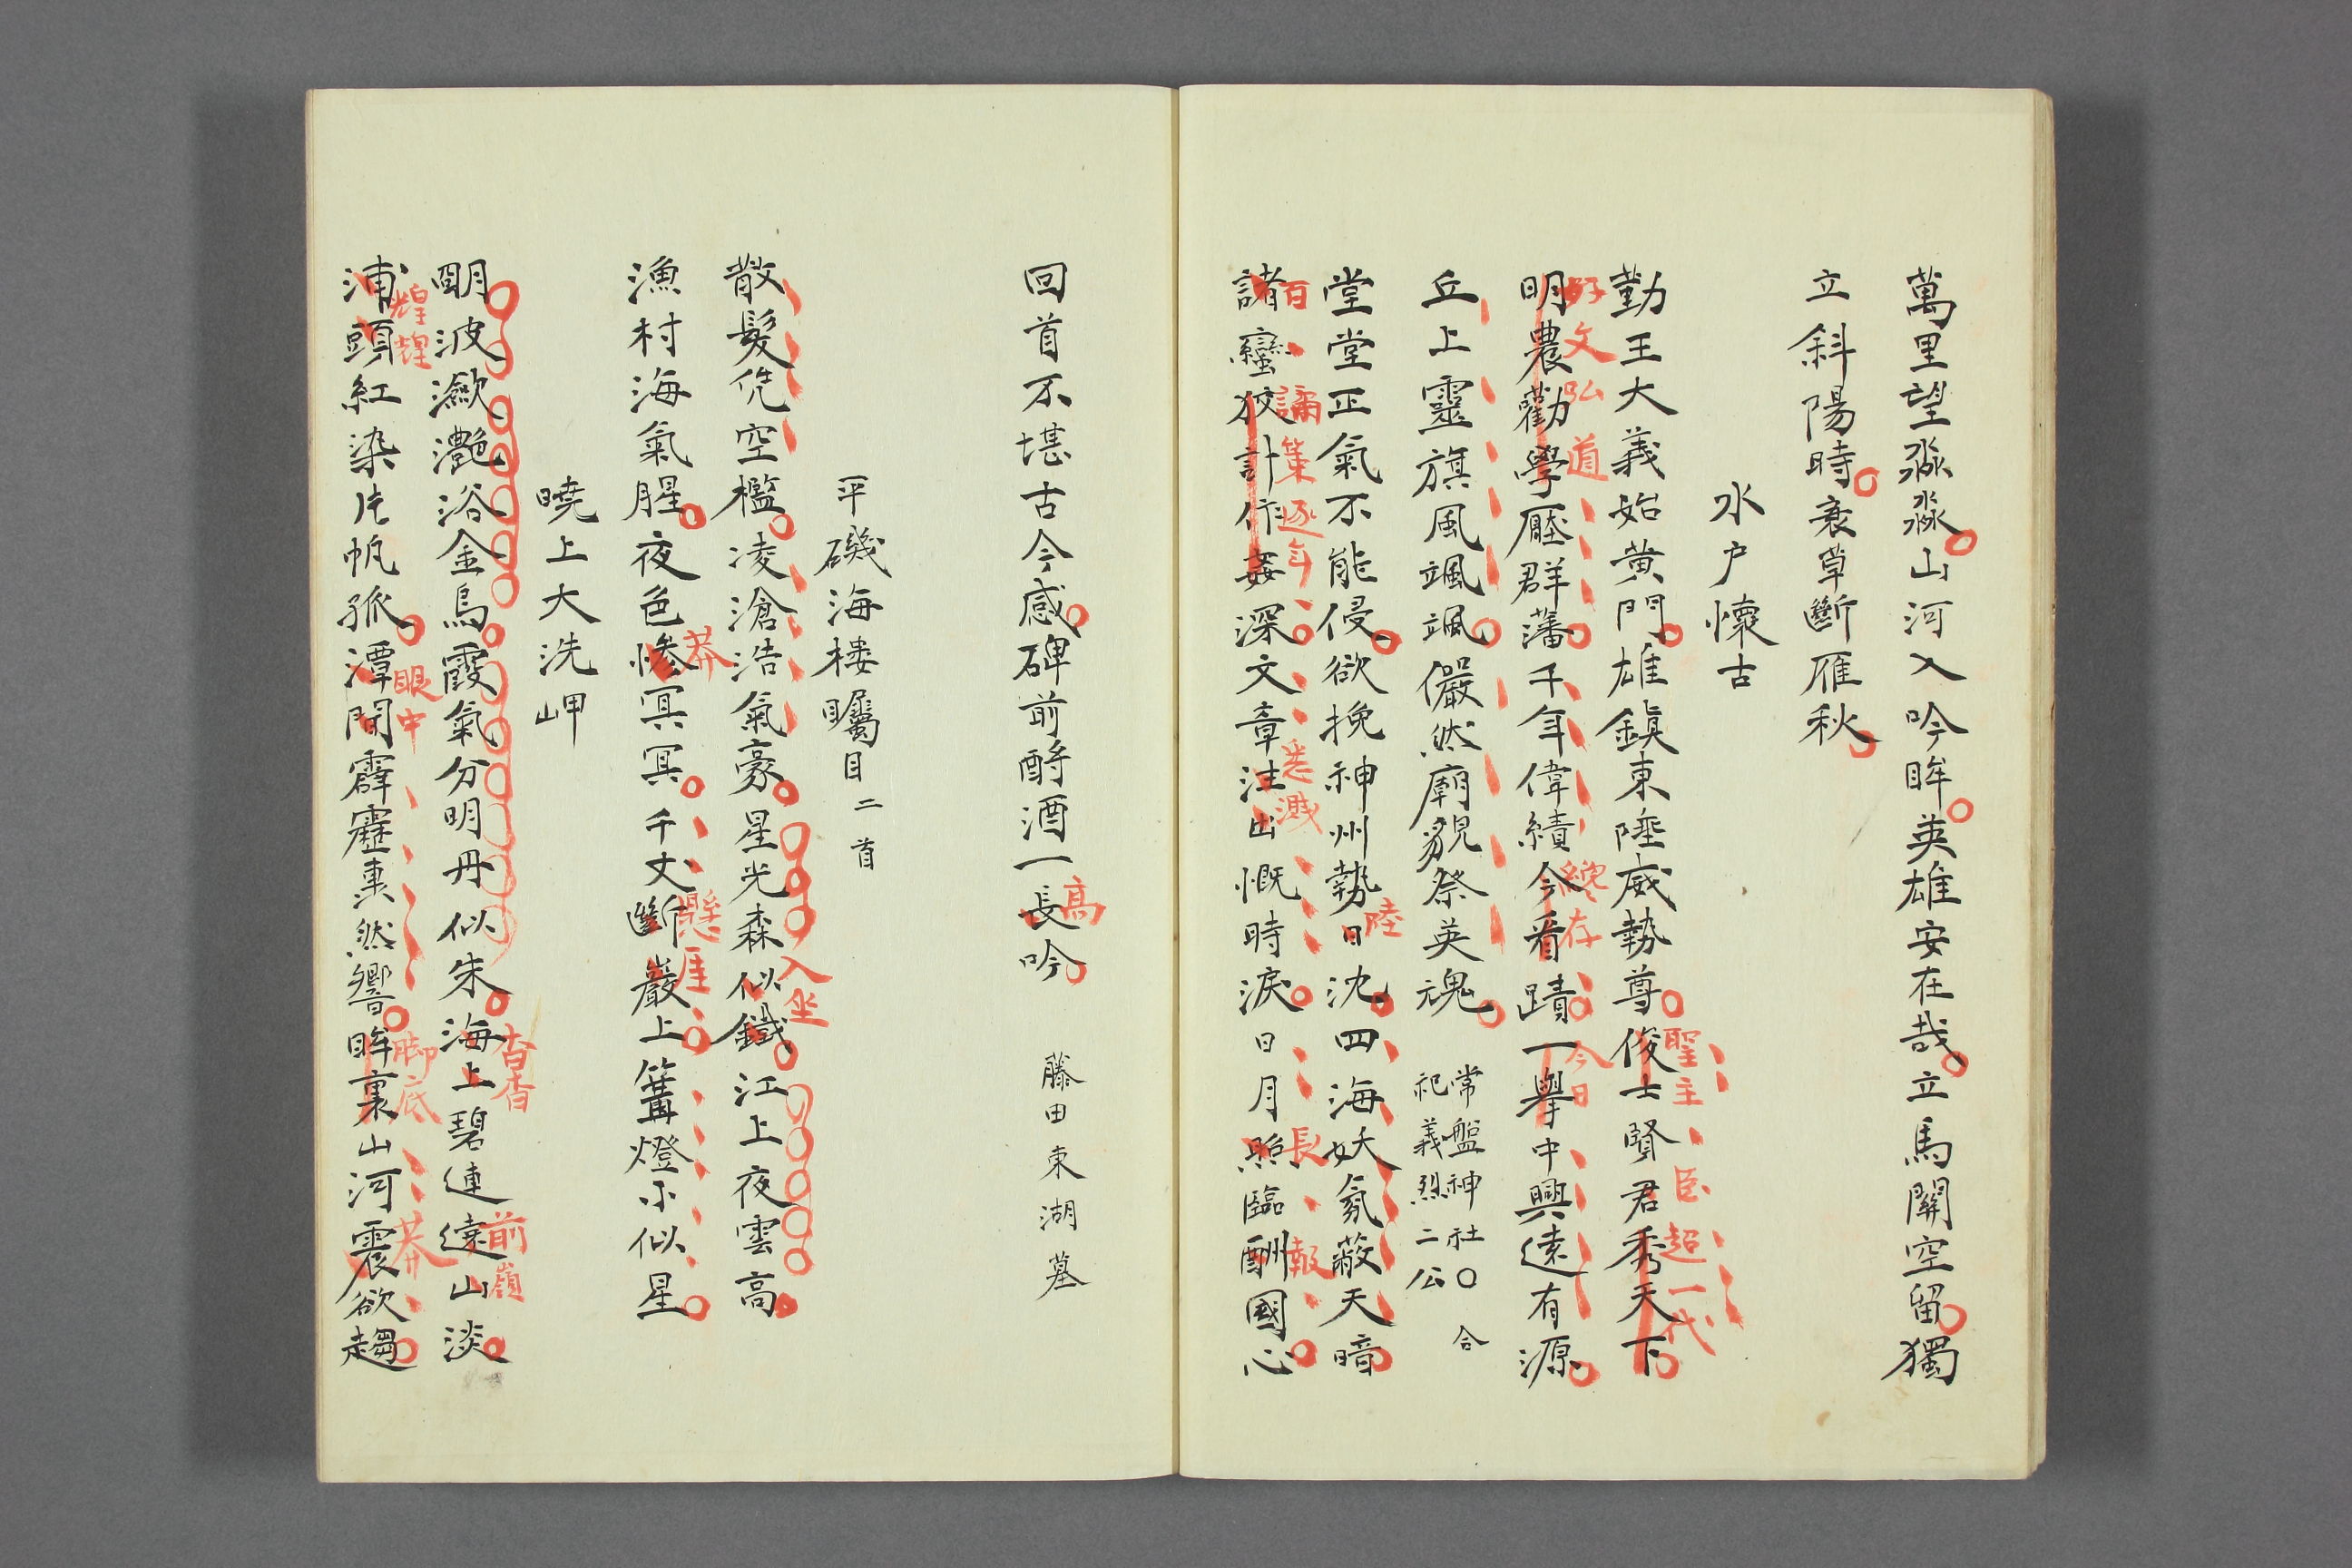 萬里望淼淼山河入吟眸英雄安在哉立馬關空留獨
立斜陽時衰草斷雁秋
水戶懷古
勤王大義始黄門雄鎭東陲威勢尊俊士賢君秀天下
聖主臣超一代
明農勸學壓群藩千年偉績今看蹟一舉中興遠有源
好文弘道總存今日
丘上靈旗風颯颯儼然廟貌祭英魂
常盤神社〇合
祀義烈二公
堂堂正氣不能侵欲挽神州勢日沈四海妖氛蔽天暗
陸
諸蠻狡計作姦深文章注出慨時淚日月照臨酬國心
百譎策逐年悉濺長報
回首不堪古今感碑前酹酒一長吟
高
藤田東湖墓
平磯海樓矚目二首
散髮凭空檻凌滄浩氣豪星光森似鐵江上夜雲高
入坐
漁村海氣腥夜色慘冥冥千丈斷巖上篝燈小似星
莽懸厓
曉上大洗岬
朙波瀲灔浴金烏霞氣分明丹似朱海上碧連遠山淡
杳杳前嶺
浦頭紅染片帆孤潭間霹靂轟然響眸裏山河震欲趨
煌煌眼中脚底莽